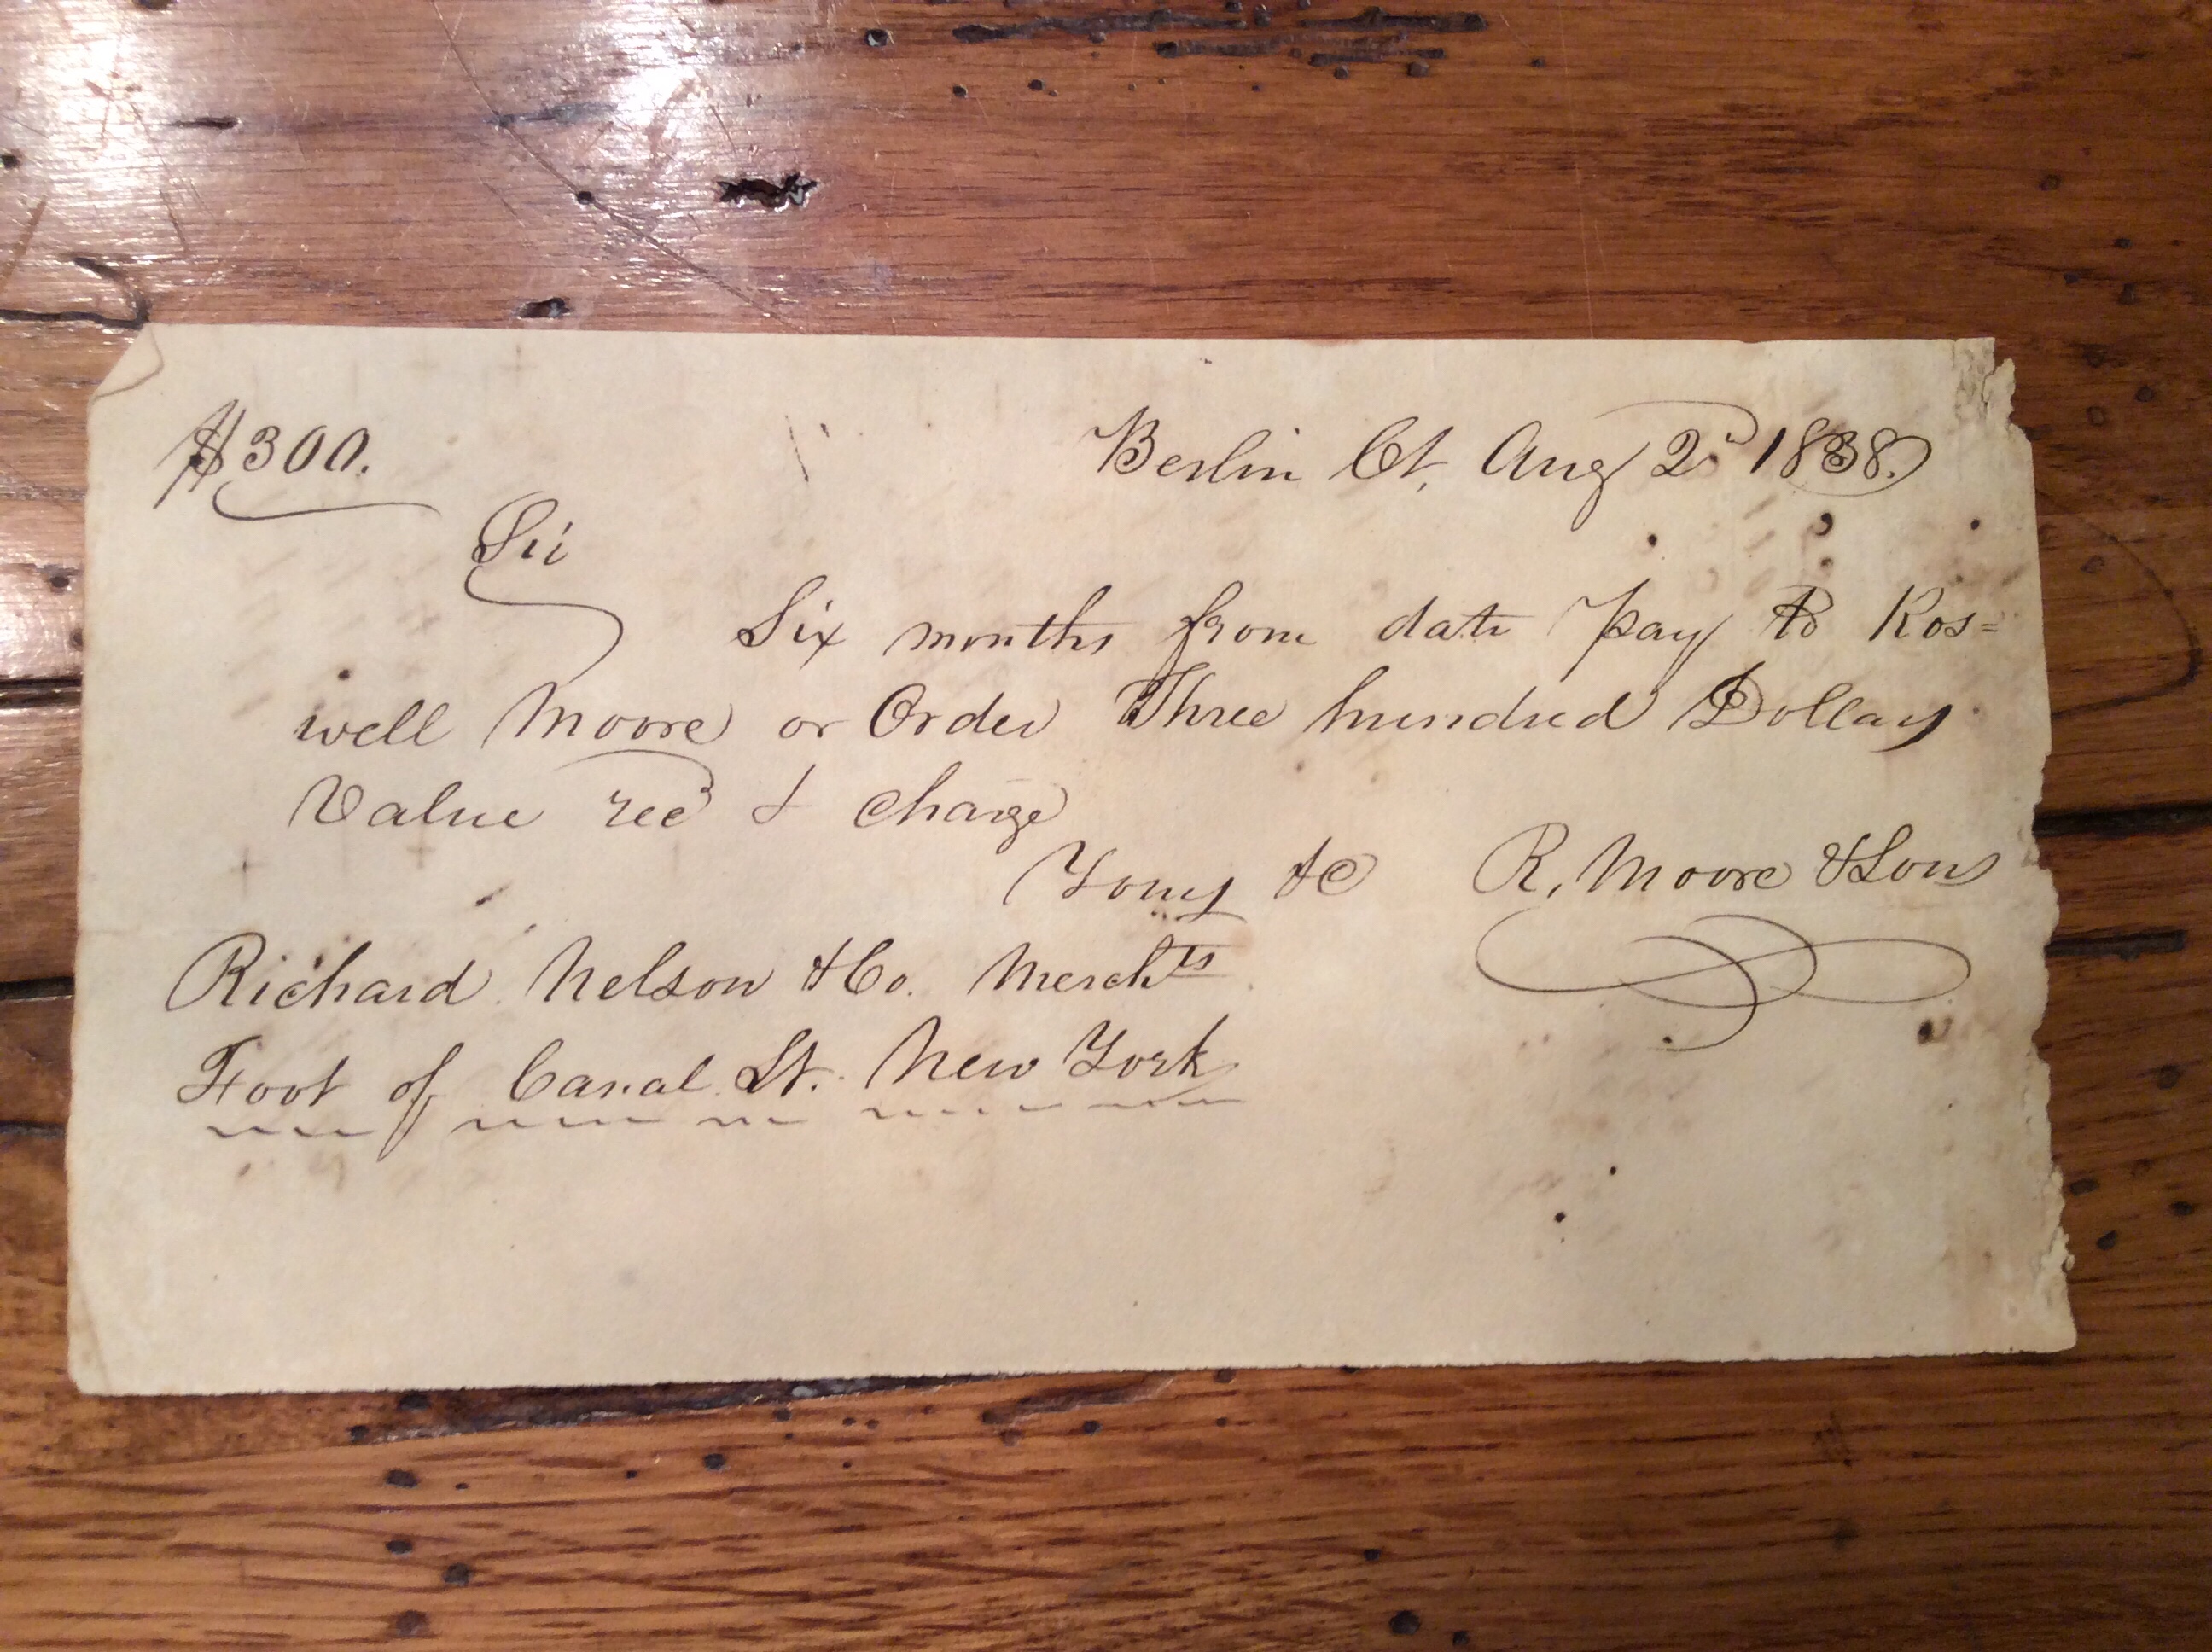 $300. Berlin Ct, Aug 2d 1838.
Sir
Six months from date pay to Ros=
well Moore or Order Three hundred Dollars
Value recd & charge
Yours &C R, Moore & Sons
Richard Nelson & Co. Merchts
Foot of Canal St. New York